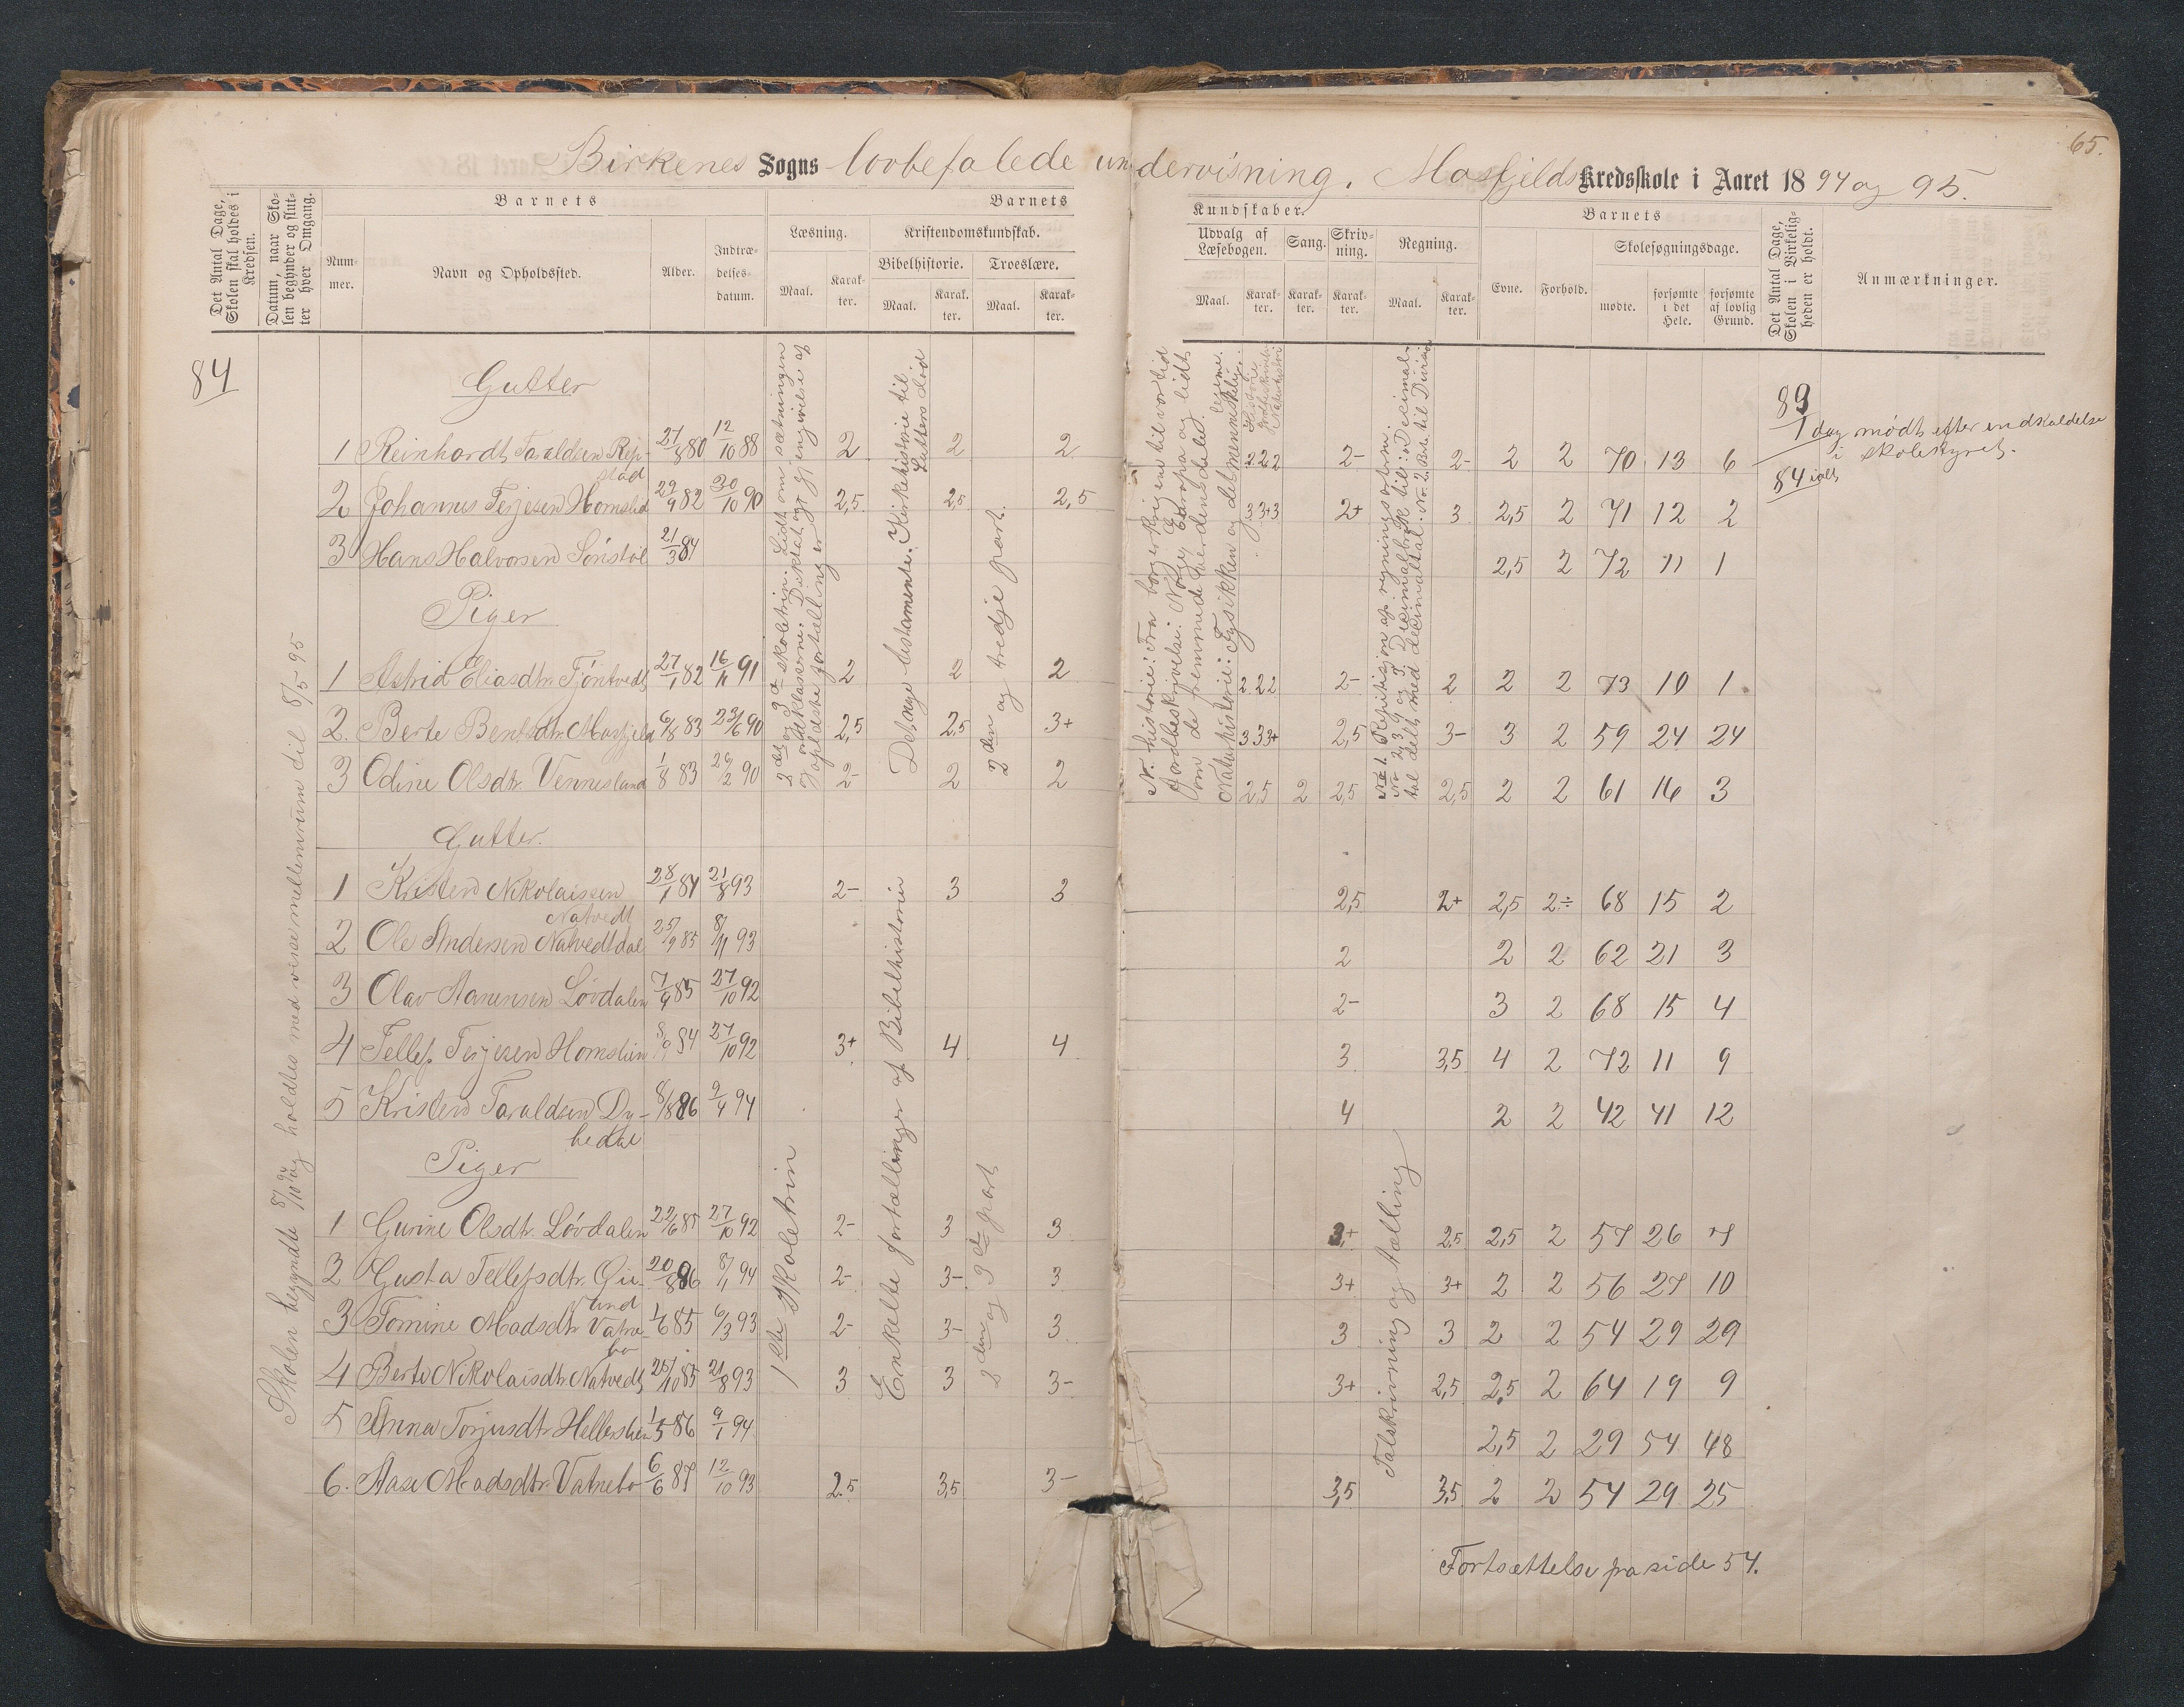 65.
Birkenes Sogns lovbefalede undervisning. Mosfjelds Kredsskole i Aaret 1894 og 95.
Det Antal Dage, Skolen skal holdes i Kredsen.
Datum, naar Skolen begynder og slutter hver Omgang.
Barnets
Nummer.
Navn og Opholdssted.
Alder.
Indtrædelsesdatum.
Barnets
Læsning.
Maal.
Karakter.
Kristendomskundskab.
Bibelhistorie.
Maal.
Karakter.
Troeslære.
Maal.
Karakter.
Kundskaber.
Udvalg af Læsebogen.
Maal.
Karakter.
Sang.
Karakter.
Skrivning.
Karakter.
Regning.
Maal.
Karakter.
Barnets
Evne.
Forhold.
Skolesøgningsdage.
mødte.
forsømte i det Hele.
forsømte af lovlig Grund.
Det Antal Dage, Skolen i Virkeligheden er holdt.
Anmærkninger.
84
Skolen begyndte 8/10 94 og holdtes med visse mellemrum til 8/5 95
Gutter
1 Reinhardt Taraldsen Repstad 27/8 80 12/10 88 2 2 2 2 2 2 2- 2- 2 2 70 13 6
2 Johannes Terjesen Homslid 22/9 82 30/10 90 2,5 2,5 2,5 3 3+ 3 2+ 3 2,5 2 71 12 2
3 Hans Halvorsen Sønstøl 21/3 84 2,5 2 72 11 1
Piger
1 Astrid Eliasdtr. Tjøntvedt 27/1 82 16/11 91 2 2 2 2 2 2 2- 2 2 2 73 10 1
2. Berte Bentsdtr. Mosfjeld 6/8 83 23/6 90 2,5 2,5 3+ 3 3 3+ 2,5 3- 3 2 59 24 24
3 Odine Olsdtr. Vennesland 1/8 83 29/2 90 2- 2 2 2,5 2 2,5 2,5 2 2 61 16 3
2den og 3die skoletrin. Lidt om sætningen
og gjengivelse af
oplæste fortællinger
Det nye testamente. Kirkehistorie til
Luthers Død
2den og tredje part.
N. historie: Fra borgerkrigen til vor tid
Jordbeskrivelse: Norge Europa og lidt
om de fremmede Verdensdele.
Naturhistorie: Fysikken og det menneskelige legeme.
Historie
Jordbeskrivelse
Naturhistorie
No 1. Repitisjon af regningsarterne.
No 2 og 3. Decimalbrøk til: Decimaltal delt med decimaltal. No 2. Brøk til Division
89
1 dag mødt efter indkaldelse
i skolestyret.
84 ialt
Gutter.
1 Kristen Nikolaissen Natvedt 28/1 84 21/8 93 2- 3 3 2,5 2+ 2,5 2÷ 68 15 2
2 Ole Andersen Natvedtdal 25/9 85 8/11 93 2 2 2 62 21 3
3 Olav Aanensen Løvdalen 7/9 85 27/10 92 2- 3 2 68 15 4
4 Tellef Terjesen Homslien 8/9 84 27/10 92 3+ 4 4 3 3,5 4 2 72 11 9
5 Kristen Taraldsen Dybedal 8/8 86 2/4 94 4 2 2 42 41 12
Piger
1 Gurine Olsdtr. Løvdalen 22/6 85 27/10 92 2- 3 3 3+ 2,5 2,5 2 57 26 7
2 Gusta Tellefsdtr. 20/8 86 8/1 94 2- 3- 3 3+ 3+ 2 2 56 27 10
3 Tomine Madsdtr. Vatnebo 1/6 85 6/3 93 2- 3- 3 3 3 2 2 54 29 29
4 Berte Nikolaisdtr. Natvedt 25/10 85 21/8 93 3 3 3- 3+ 2,5 2,5 2 64 19 9
5 Anna Torjusdtr. Hellerslien 1/5 86 9/1 94 2,5 2 29 54 48
6. Aase Madsdtr. Vatnebo 6/6 87 12/10 93 2.5 3,5 3- 3,5 3,5 2 2 54 29 25
1ste Skoletrin
Enkelte fortællinger af Bibelhistorien
2den og 3die part
Talskrivning og tælling
Fortsættelse paa side 54.